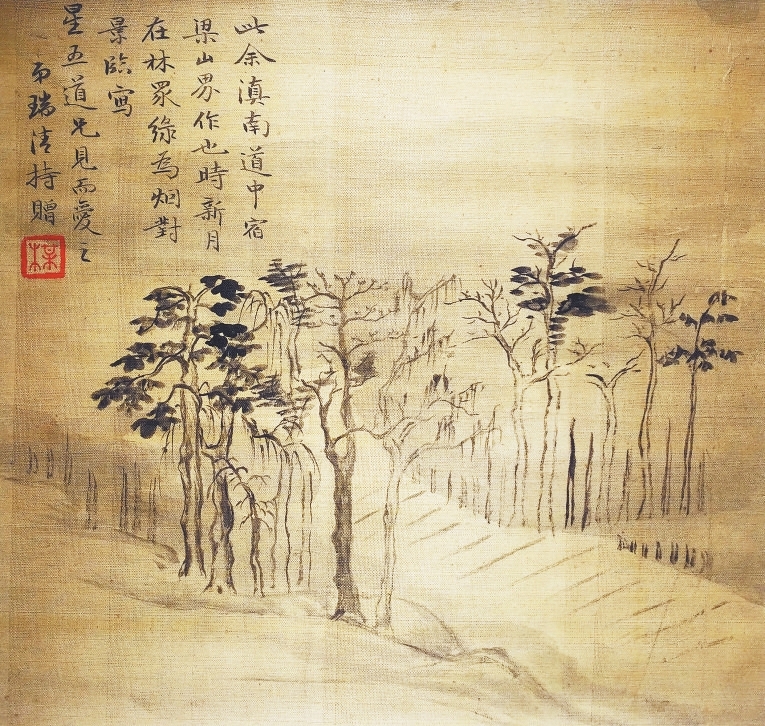 此余滇南道中宿
梁山界作也時新月
在林眾綠為烟對
景臨寫
星五道兄見而愛之
瑞清持贈